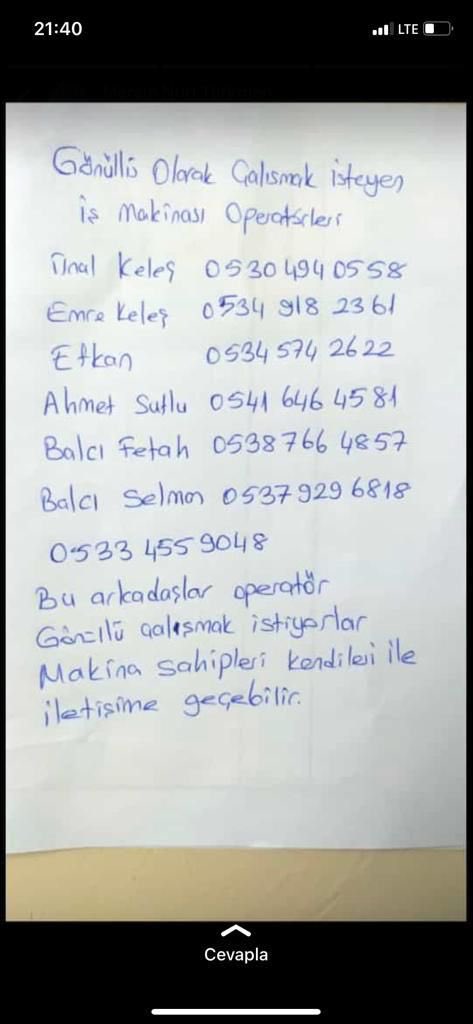 21:40
LTE
Gönüllü Olarak Çalışmak isteyen
iş Makinası Operatörleri
Ünal Keleş 0530 494 0558
Emre Keleş 0534 918 2361
Efkan 0534 574 2622
Ahmet Sutlu 0541 646 4581
Balcı Fetah 0538 766 4857
Balcı Selman 0537 929 6818
0533 455 9048
Bu arkadaşlar operatör
Gönüllü çalışmak istiyorlar
Makina sahipleri kendileri ile
iletişime geçebilir.
Cevapla